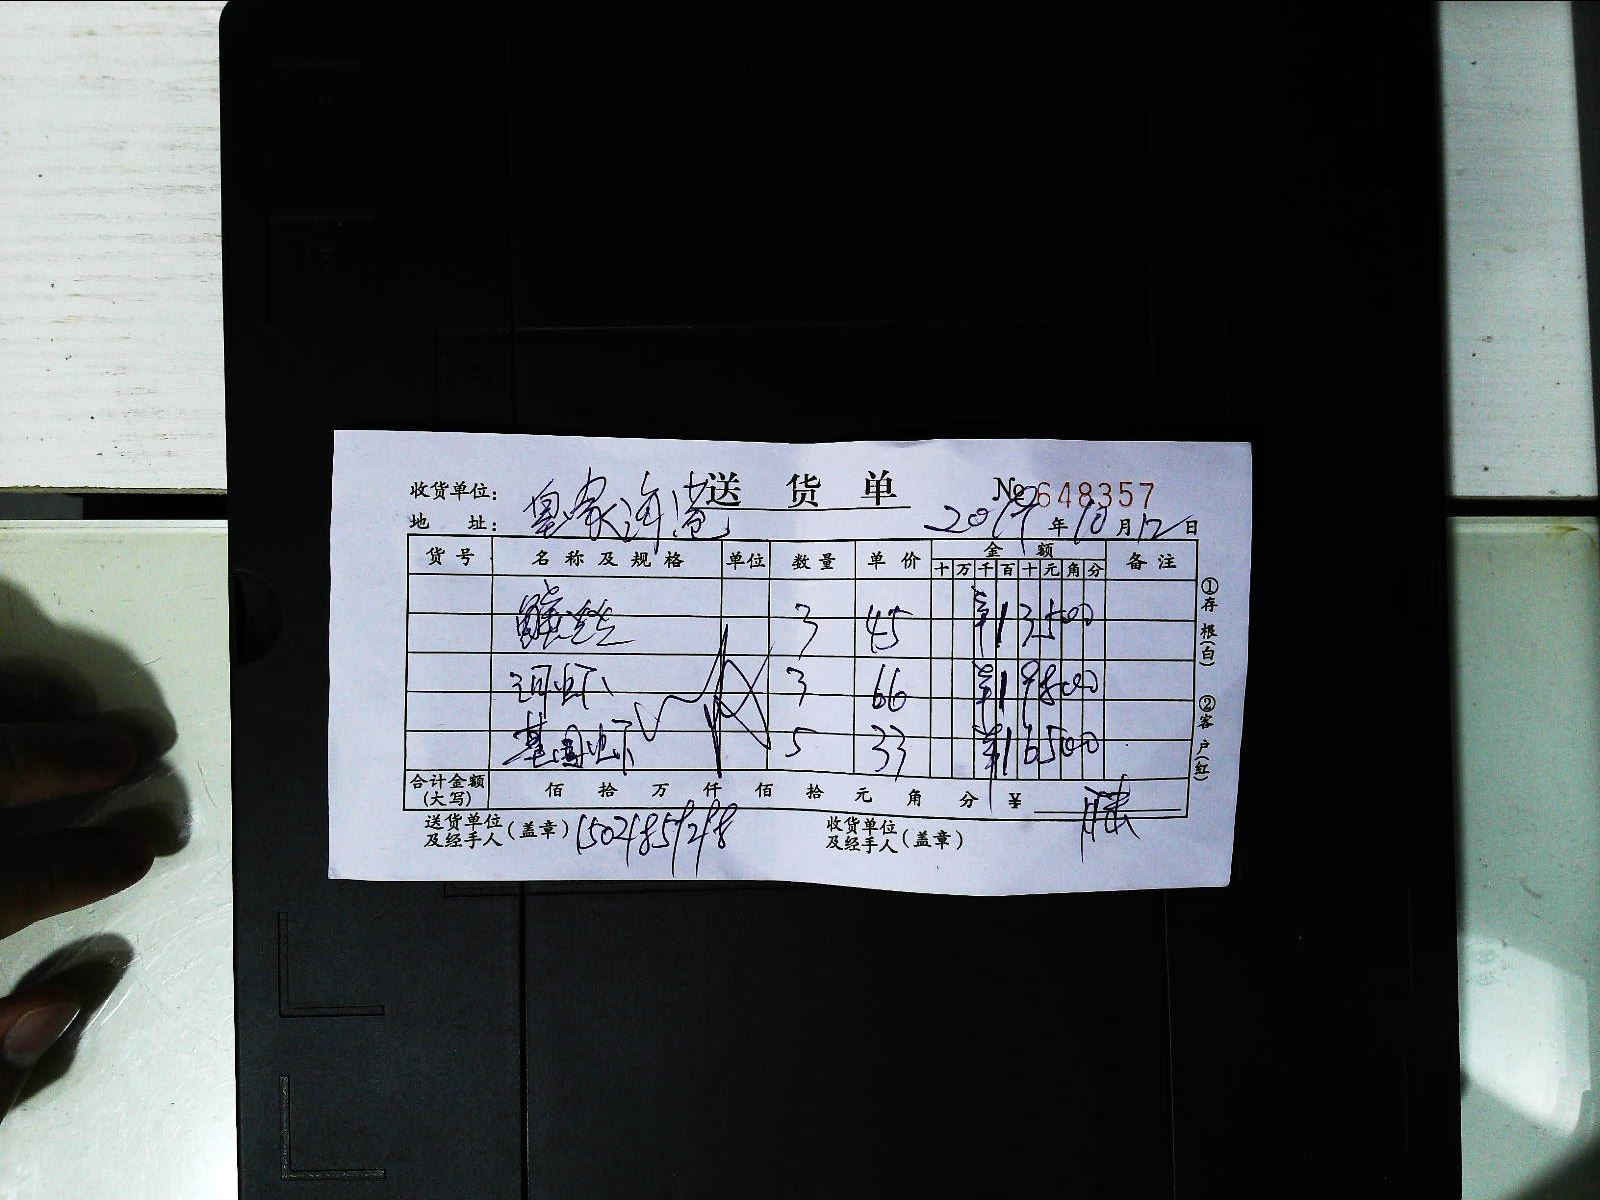 送货单 No 648357
收货单位: 皇家海港
地 址: 2019年10月12日
货号 名称及规格 单位 数量 单价 金额 备注
十 万 千 百 十 元 角 分
3 45 ¥13500
河虾 3 66 ¥19800
基围虾 5 33 ¥16500
合计金额(大写) 佰 拾 万 仟 佰 拾 元 角 分 ¥
送货单位及经手人(盖章) 15021859298 收货单位及经手人(盖章)
①存根(白) ②客户(红)